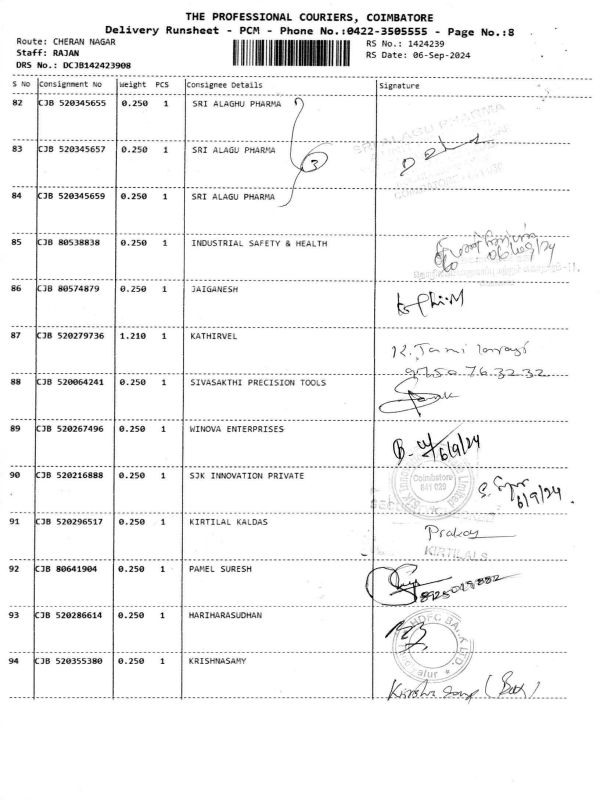 THE PROFESSIONAL COURIERS, COIMBATORE
Delivery Runsheet - PCM - Phone No.:0422-3505555 - Page No.:8
Route: CHERAN NAGAR
RS No.: 1424239
Staff: RAJAN
RS Date: 06-Sep-2024
DRS No.: DCJB142423908
S No Consignment No Weight PCS Consignee Details Signature
82 CJB 520345655 0.250 1 SRI ALAGHU PHARMA
SRI ALAGU PHARMA
83 CJB 520345657 0.250 1 SRI ALAGU PHARMA 3
84 CJB 520345659 0.250 1 SRI ALAGU PHARMA
85 CJB 80538838 0.250 1 INDUSTRIAL SAFETY & HEALTH
86 CJB 80574879 0.250 1 JAIGANESH
87 CJB 520279736 1.210 1 KATHIRVEL
88 CJB 520064241 0.250 1 SIVASAKTHI PRECISION TOOLS
89 CJB 520267496 0.250 1 WINOVA ENTERPRISES 6/9/24
90 CJB 520216888 0.250 1 SJK INNOVATION PRIVATE Coimbatore 641 029 6/9/24
91 CJB 520296517 0.250 1 KIRTILAL KALDAS
KIRTILALS
92 CJB 80641904 0.250 1 PAMEL SURESH
93 CJB 520286614 0.250 1 HARIHARASUDHAN HDFC BANK LTD.
94 CJB 520355380 0.250 1 KRISHNASAMY